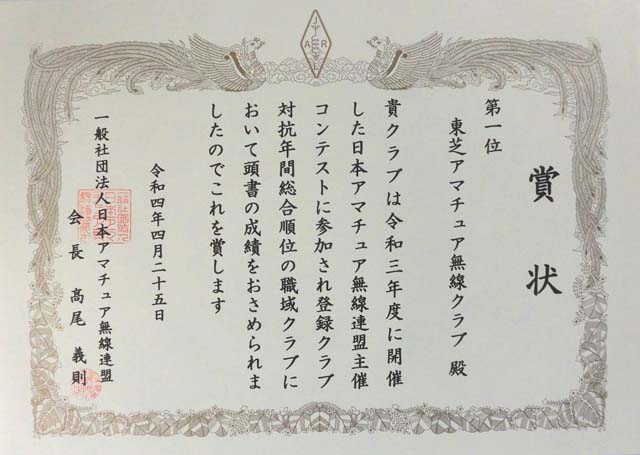 賞状
第一位
東芝アマチュア無線クラブ 殿
貴クラブは令和三年度に開催
した日本アマチュア無線連盟主催
コンテストに参加され登録クラブ
対抗年間総合順位の職域クラブに
おいて頭書の成績をおさめられま
したのでこれを賞します
令和四年四月二十五日
一般社団法人日本アマチュア無線連盟
会長 高尾義則
J
A R